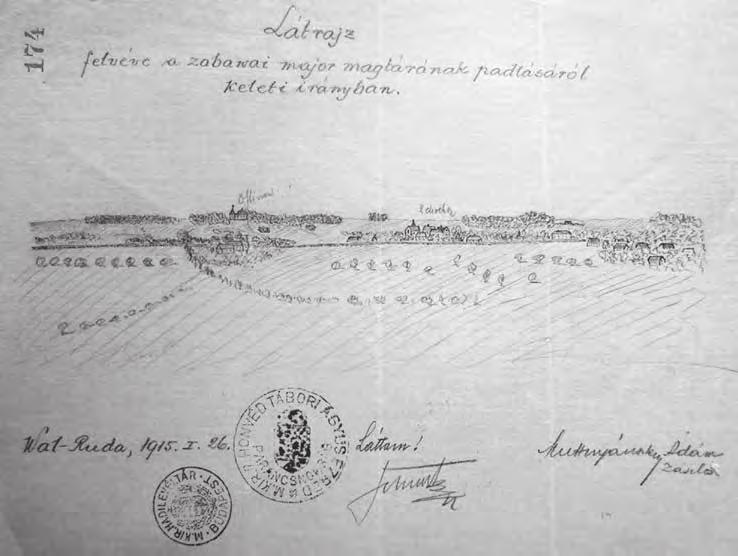 174
Látrajz
felvéve a zabawai major magtárának padlásáról
keleti irányban.
Wat-Ruda, 1915. I. 26.
Láttam!
Ádám
M. KIR. II HONVÉD TÁBORI ÁGYUS EZRED
PARANCSNOKSÁG
M. KIR. HADILEVÉLTÁR · BUDAPEST ·